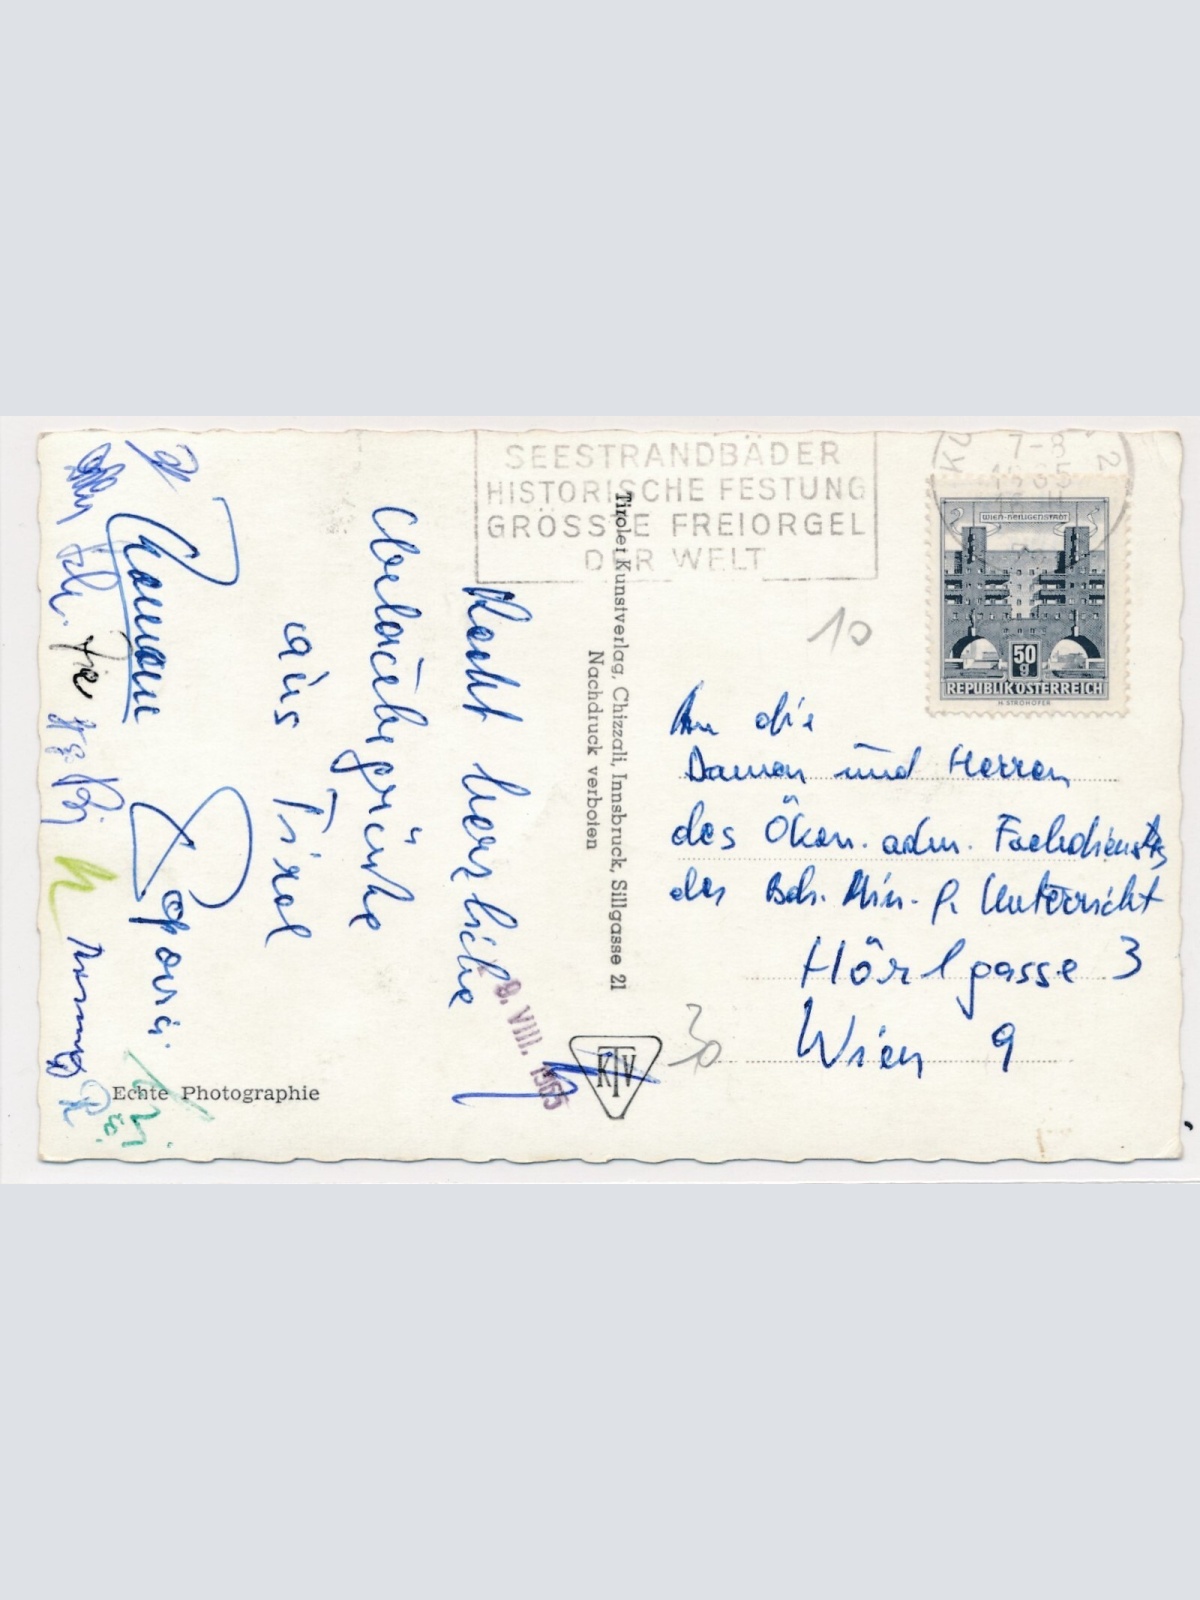 SEESTRANDBÄDER
HISTORISCHE FESTUNG
GRÖSSTE FREIORGEL
DER WELT
7-8
1965
2
WIEN-HEILIGENSTADT
50
g
REPUBLIK ÖSTERREICH
H. STROHOFER
10
An die
Damen und Herren
des Ökon. adm. Fachdienstes
des Bdn. Min. f. Unterricht
Hörlgasse 3
Wien 9
30
Tiroler Kunstverlag, Chizzali, Innsbruck, Sillgasse 21
Nachdruck verboten
KTV
9. VIII. 1965
Recht herzliche
Urlaubsgrüße
aus
Tirol
Echte Photographie